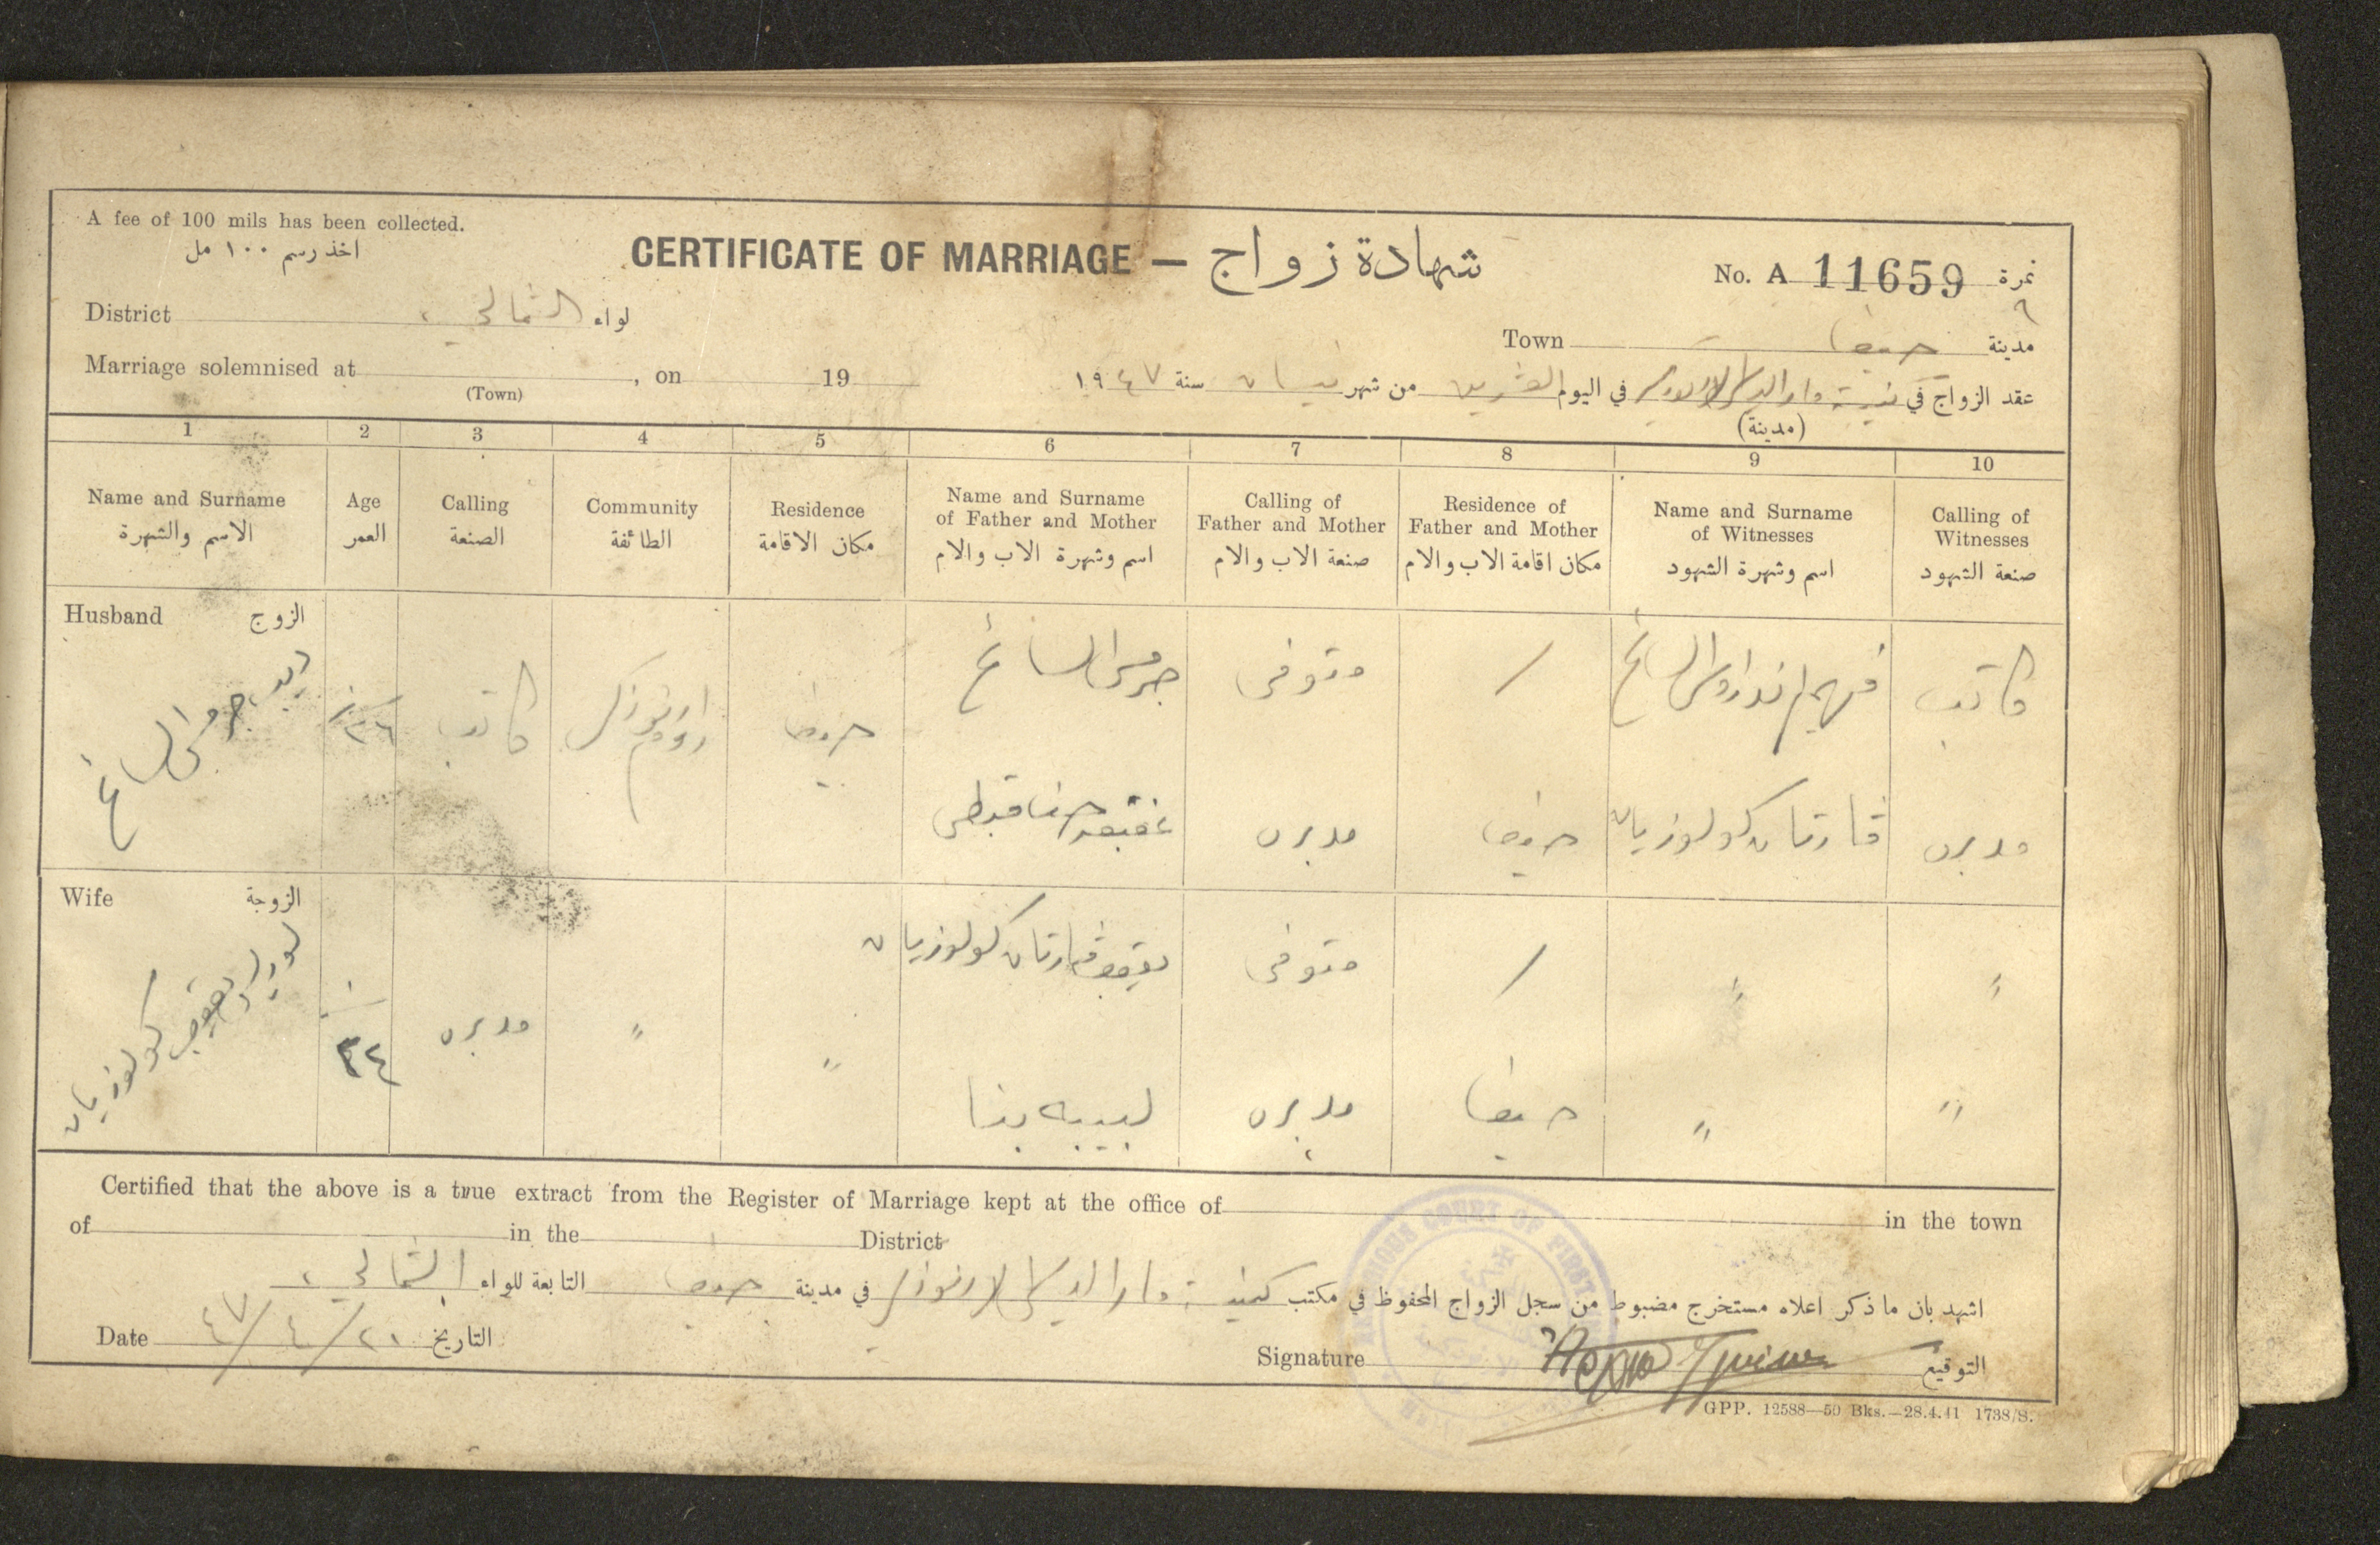 A fee of 100 mils has been collected.
اخذ رسم ١٠٠ مل
CERTIFICATE OF MARRIAGE — شهادة زواج
No. A 11659 نمرة
٦
District الشمالي لواء
Town حيفا مدينة
Marriage solemnised at , on 19
(Town)
عقد الزواج في كنيسة مار الياس للارثوذكس في اليوم العشرين من شهر نيسان سنة ١٩٤٧
(مدينة)
1 2 3 4 5 6 7 8 9 10
Name and Surname
الاسم والشهرة
Age
العمر
Calling
الصنعة
Community
الطائفة
Residence
مكان الاقامة
Name and Surname
of Father and Mother
اسم وشهرة الاب والام
Calling of
Father and Mother
صنعة الاب والام
Residence of
Father and Mother
مكان اقامة الاب والام
Name and Surname
of Witnesses
اسم وشهرة الشهود
Calling of
Witnesses
صنعة الشهود
Husband الزوج
جرجس الصائغ
٣٦
كاتب
روم ارثوذكس
حيفا
جرجس الصائغ
متوفى
/
فهيم اندراوس الصائغ
كاتب
حنا قبطي
مدبرة
حيفا
ڤارتان كولوزيان
مدبرة
Wife الزوجة
لوريس يعقوب كولوزيان
٣٤
مدبرة
"
"
يعقوب ڤارتان كولوزيان
متوفى
/
"
"
لبيبه بنا
مدبرة
حيفا
"
"
Certified that the above is a true extract from the Register of Marriage kept at the office of in the town
of in the District
اشهد بان ما ذكر اعلاه مستخرج مضبوط من سجل الزواج المحفوظ في مكتب كنيسة مار الياس للارثوذكس في مدينة حيفا التابعة للواء الشمالي
Date ٢١/٤/٤٧ التاريخ
Signature التوقيع
RELIGIOUS COURT OF FIRST
GPP. 12588—50 Bks.—28.4.41 1738/S.